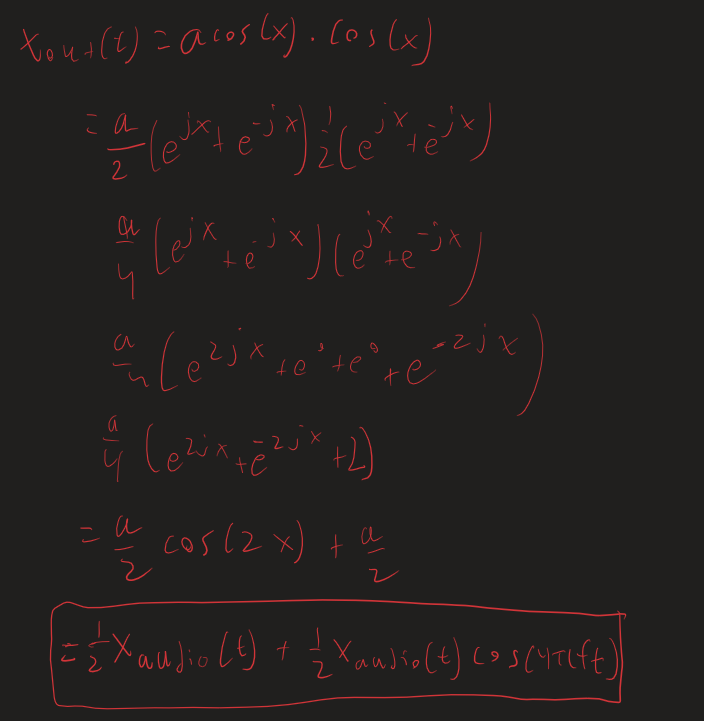 x_out(t) = a cos(x) · cos(x)
= a/2 (e^{jx} + e^{-jx}) 1/2 (e^{jx} + e^{-jx})
a/4 (e^{jx} + e^{-jx}) (e^{jx} + e^{-jx})
a/4 (e^{2jx} + e^0 + e^0 + e^{-2jx})
a/4 (e^{2jx} + e^{-2jx} + 2)
= a/2 cos(2x) + a/2
= 1/2 x_audio(t) + 1/2 x_audio(t) cos(4πft)